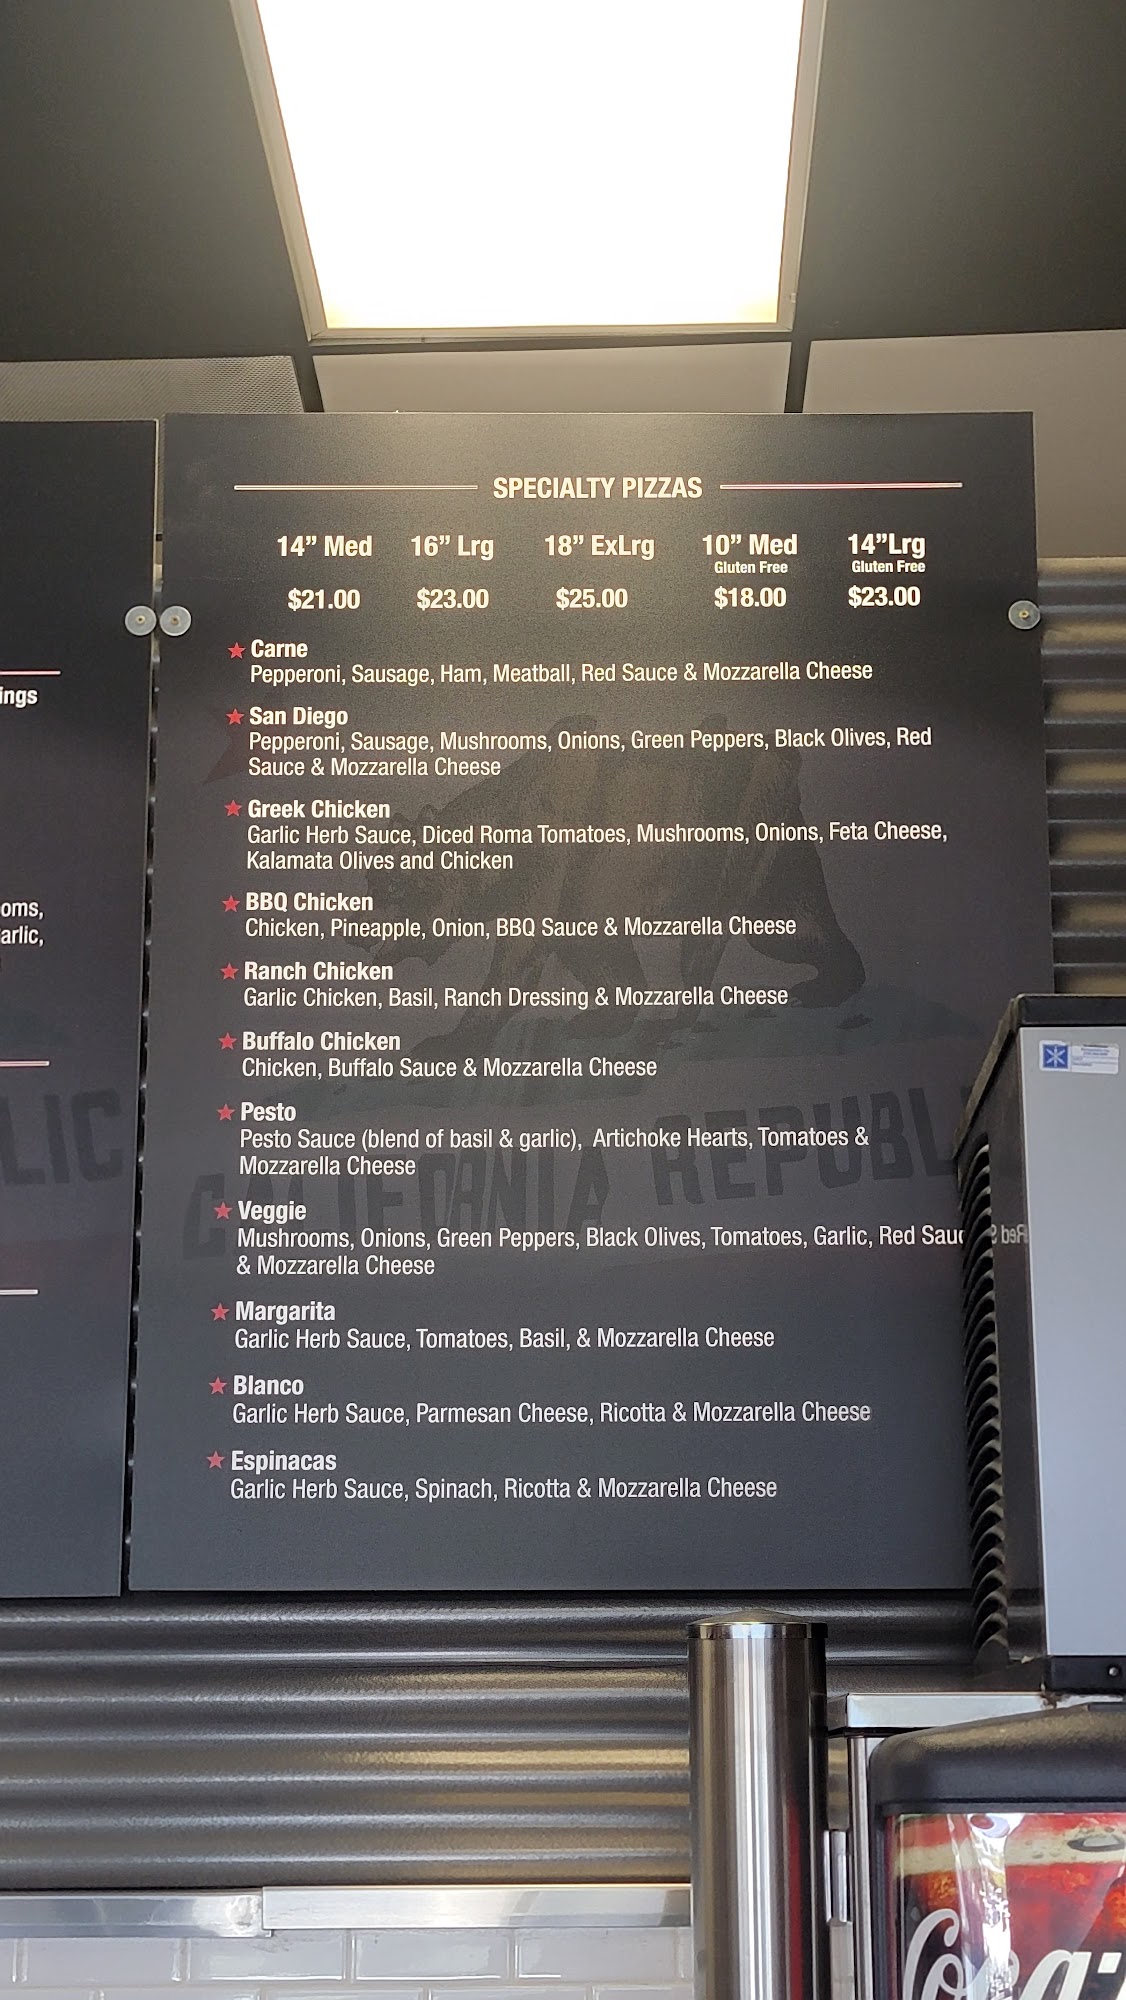 SPECIALTY PIZZAS
14” Med 16” Lrg 18” ExLrg 10” Med 14”Lrg
Gluten Free Gluten Free
$21.00 $23.00 $25.00 $18.00 $23.00
Carne
Pepperoni, Sausage, Ham, Meatball, Red Sauce & Mozzarella Cheese
San Diego
Pepperoni, Sausage, Mushrooms, Onions, Green Peppers, Black Olives, Red
Sauce & Mozzarella Cheese
Greek Chicken
Garlic Herb Sauce, Diced Roma Tomatoes, Mushrooms, Onions, Feta Cheese,
Kalamata Olives and Chicken
BBQ Chicken
Chicken, Pineapple, Onion, BBQ Sauce & Mozzarella Cheese
Ranch Chicken
Garlic Chicken, Basil, Ranch Dressing & Mozzarella Cheese
Buffalo Chicken
Chicken, Buffalo Sauce & Mozzarella Cheese
Pesto
Pesto Sauce (blend of basil & garlic), Artichoke Hearts, Tomatoes &
Mozzarella Cheese
Veggie
Mushrooms, Onions, Green Peppers, Black Olives, Tomatoes, Garlic, Red Sauc
& Mozzarella Cheese
Margarita
Garlic Herb Sauce, Tomatoes, Basil, & Mozzarella Cheese
Blanco
Garlic Herb Sauce, Parmesan Cheese, Ricotta & Mozzarella Cheese
Espinacas
Garlic Herb Sauce, Spinach, Ricotta & Mozzarella Cheese
CALIFORNIA REPUBL
ings
oms,
arlic,
LIC